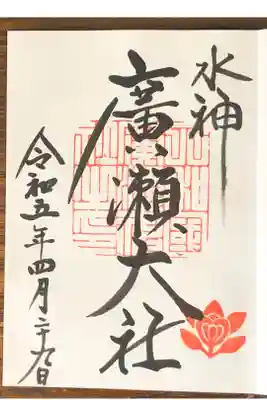 水神
廣瀬大社
令和五年四月二十九日